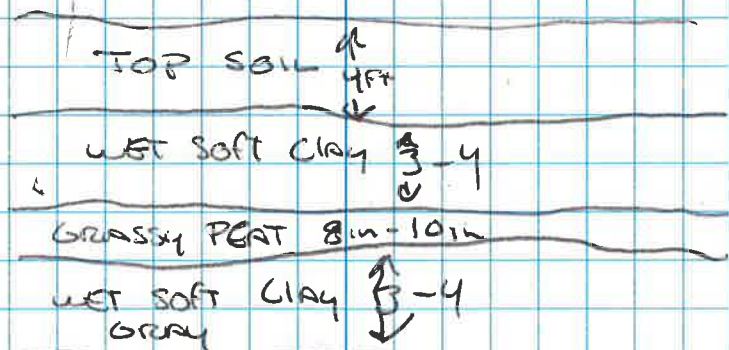 TOP SOIL 4FT
WET SOFT CLAY 3-4
GRASSY PEAT 8in-10in
WET SOFT CLAY 3-4
GRAY